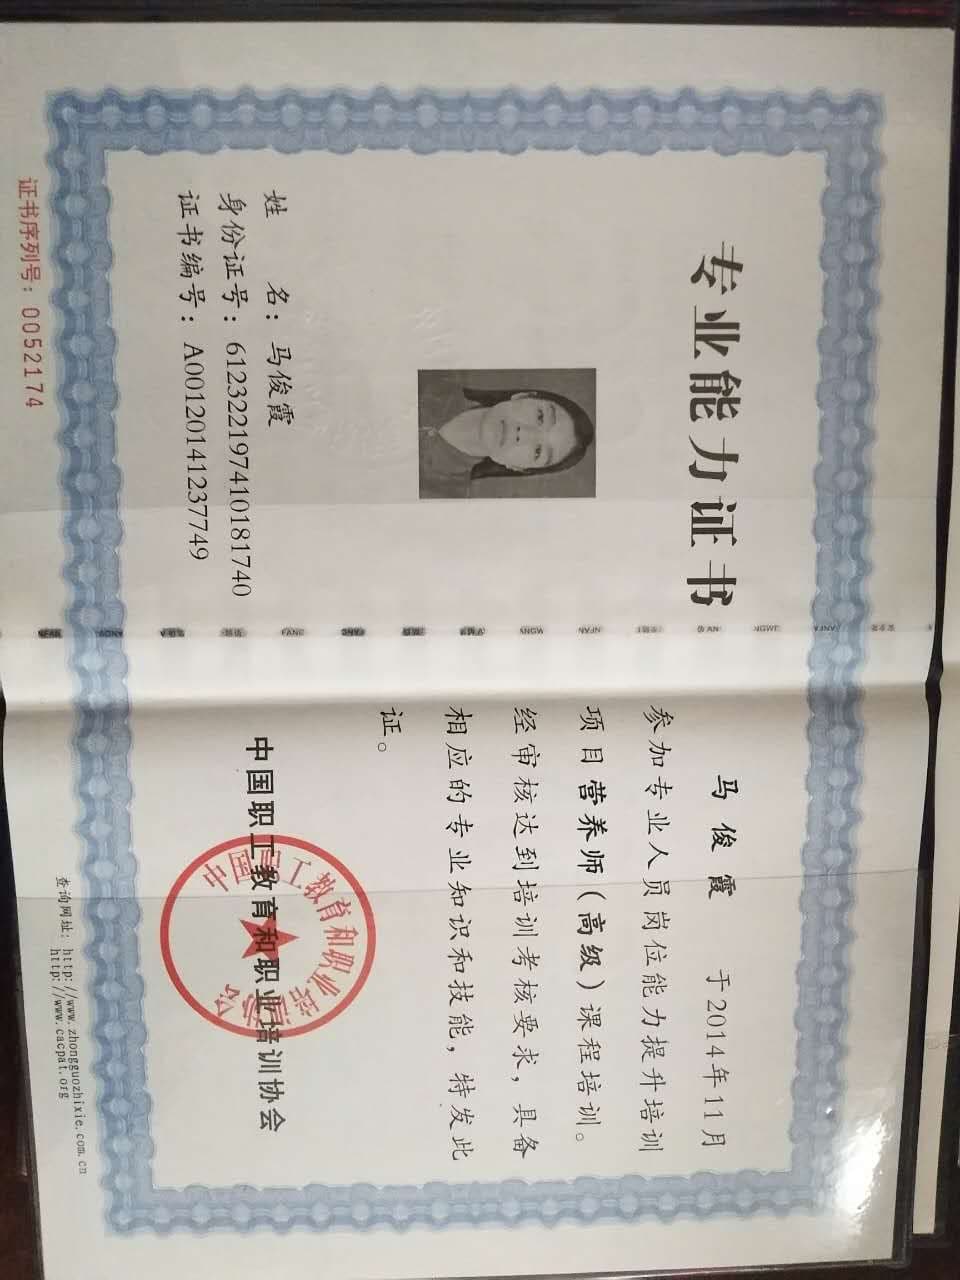 专业能力证书
姓 名：马俊霞
身份证号：612322197410181740
证书编号：A001201412377​49
证书序列号：0052174
马俊霞 于2014年11月
参加专业人员岗位能力提升培训
项目营养师（高级）课程培训。
经审核达到培训考核要求，具备
相应的专业知识和技能，特发此
证。
中国职工教育和职业培训协会
中国职工教育和职业培训协会
查询网址：http://www.zhongguozhixie.com.cn
http://www.cacpat.org